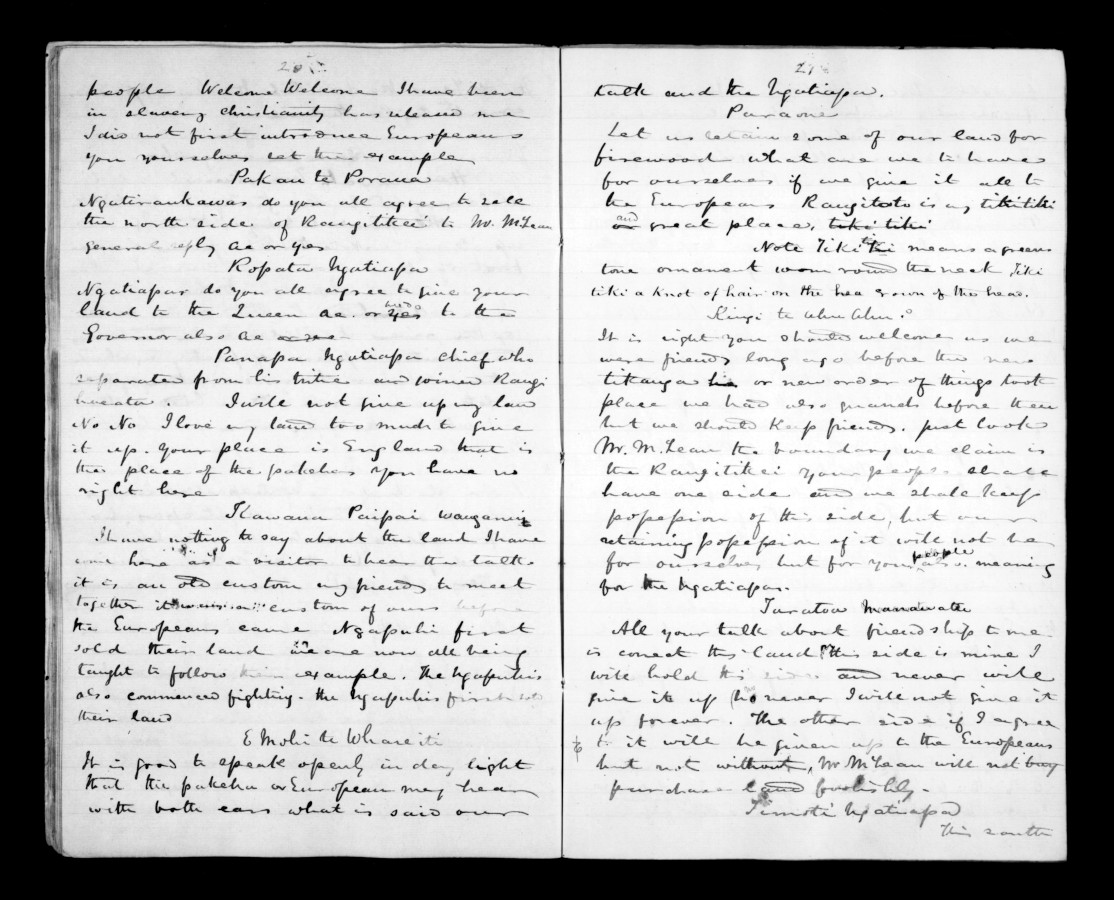 people Welcome Welcome I have been
in slavery christianity has released me
I did not first introduce Europeans
you yourselves set the example
Pakau te Porana
Ngatiraukawas do you all agree to sell
the north side of Rangitikei to Mr. McLean
general reply ae or yes
Ropata Ngatiapa
Ngatiapas do you all agree to give your
land to the Queen ae. or yes to the
Governor also ae or yes
Panapa Ngatiapa chief who
separated from his tribe and joined Rangi
haeata I will not give up my land
No No I love my land too much to give
it up. Your place is England that is
the place of the pakehas you have no
right here
Kawana Paipai Wanganui
I have nothing to say about the land I have
come here as a visitor to hear the talk
it is an old custom my friends to meet
together it was a custom of ours before
the Europeans came Ngapuhi first
sold their land we are now all being
taught to follow their example. The Ngapuhis
also commenced fighting. the Ngapuhis first sold
their land
E Mohi te Whareiti
It is good to speak openly in day light
that the pakeha or European may hear
with both ears what is said our
218
talk and the Ngatiapa.
Paraone
Let us retain some of our land for
firewood what are we to have
for ourselves if we give it all to
the Europeans Rangitoto is my tikitiki
and great place, tiki tiki
Note Tiki Tiki means a green
tone ornament worn round the neck Tiki
tiki a knot of hair on the hea crown of the head.
Kingi te Ahu Ahu
It is right you should welcome us we
were friends long ago before the new
tikanga or new order of things took
place we had also quarrels before then
but we should keep friends. just look
Mr. McLean the boundary we claim is
the Rangitikei your people shall
have one side and we shall keep
possession of this side, but our
retaining possession of it will not be
for ourselves but for your people also. meaning
for the Ngatiapas.
Taratoa Manawatu
All your talk about friendship to me
is correct this land this side is mine I
will hold this side and never will
give it up no never I will not give it
up forever. The other side if I agree
to it will be given up to the Europeans
but not without, Mr McLean will not buy
purchase land foolishly.
Timoti Ngatiapa
This south